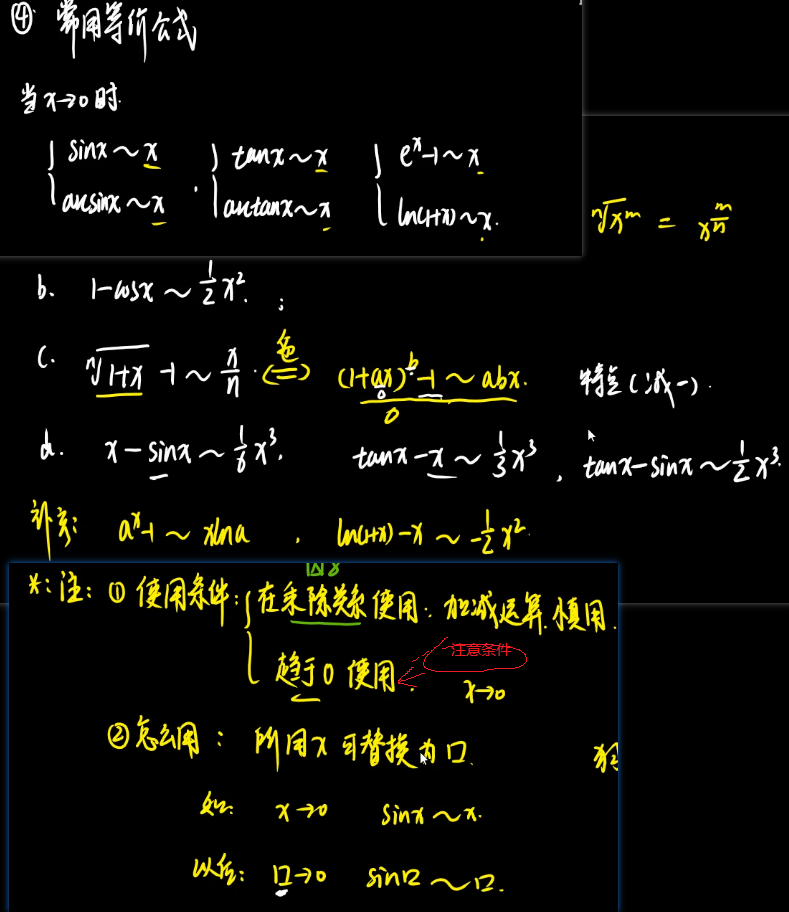 ④ 常用等价公式
当 x→0 时.
{ sinx ~ x . { tanx ~ x { eˣ-1 ~ x
arcsinx ~ x arctanx ~ x ln(1+x) ~ x.
ⁿ√xᵐ = x^(m/n)
b. 1-cosx ~ 1/2 x². ;
c. ⁿ√(1+x) -1 ~ x/n . (=) (1+ax)ᵇ-1 ~ abx. 特点(减一).
0
d. x-sinx ~ 1/6 x³. tanx-x ~ 1/3 x³ , tanx-sinx ~ 1/2 x³.
补充: aˣ-1 ~ xlna , ln(1+x)-x ~ -1/2 x².
*:注: ① 使用条件: { 在乘除关系使用. 加减运算.慎用.
趋于0 使用. 注意条件
x→0
② 怎么用: 所用x可替换为口.
如: x→0 sinx ~ x.
以后: 口→0 sin口 ~ 口.